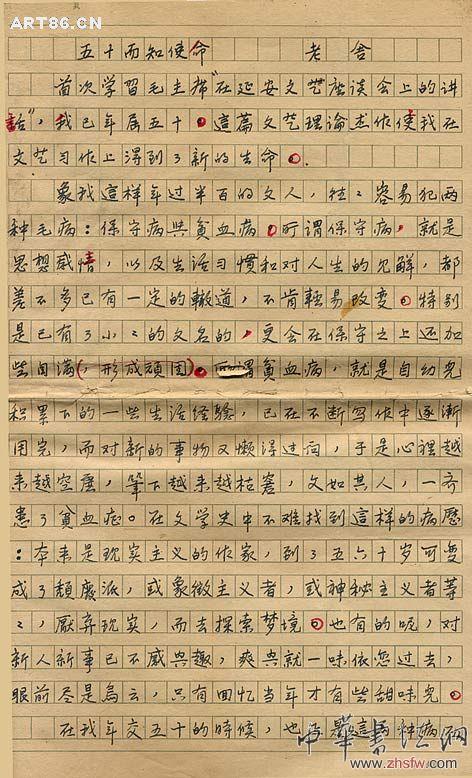 ART86.CN
五十而知使命 老舍
首次学習毛主席“在延安文艺座谈会上的讲
話”，我已年届五十。這篇文艺理論杰作使我在
文艺习作上得到了新的生命。
象我這样年过半百的文人，往々容易犯两
种毛病：保守病與貧血病。所谓保守病，就是
思想感情，以及生活习惯和对人生的見解，都
差不多已有一定的轍道，不肯輕易改变。特别
是已有了小々的文名的，更会在保守之上还加
些自满（，形成頑固）。所谓貧血病，就是自幼儿
积累下的一些生活经驗，已在不断写作中逐漸
用完，而对新的事物又懒得过问，于是心裡越
来越空虛，筆下越来越枯窘，文如其人，一齐
患了貧血症。在文学史中不难找到這样的病歷
：本来是现实主义的作家，到了五六十岁可变
成了頹废派，或象徵主义者，或神秘主义者等
々，厭弃现实，而去探索梦境。也有的呢，对
新人新事已不感興趣，爽興就一味依恋过去，
眼前尽是烏云，只有回忆当年才有些甜味兒。
在我年交五十的時候，也 是 這 种病
中華書法网
www.zhsfw.com